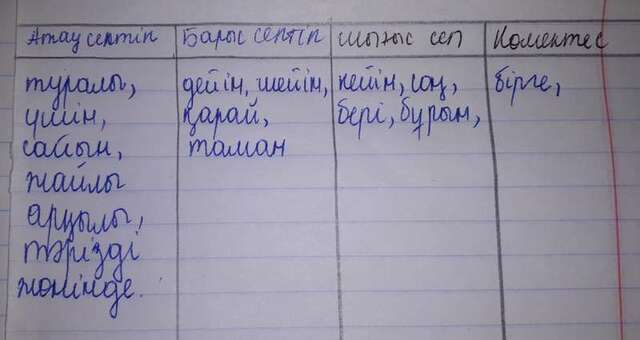 Атау септік Барыс септік Шығыс сеп Көмектес
туралы, дейін, шейін, кейін, соң, бірге,
үшін, қарай, бері, бұрын,
сайын, таман
жайлы
арқылы,
тәрізді
жөнінде.